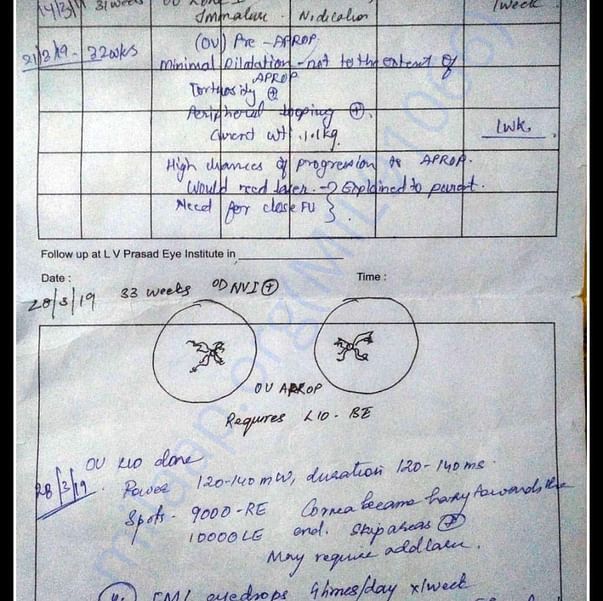 14/3/19 31 weeks OU Zone I 1week
Immature. No dilation
21/3/19 - 32wks (OU) Pre - APROP.
Minimal Dilatation - not to the extent of
APROP
Tortuosity ⊕
Peripheral looping ⊕.
Current wt: 1.1kg. 1wk.
High chances of progression to APROP.
Would need laser. → Explained to parent.
Need for close FU }.
Follow up at L V Prasad Eye Institute in
Date : Time :
28/3/19 33 weeks OD NVI ⊕
OU APROP
Requires LIO - BE
OU LIO done
28/3/19. Power 120-140 mW, duration 120-140 ms.
Spots - 9000 - RE Cornea became hazy towards the
10000 LE end. Skip areas ⊕
May require add laser.
FML eyedrops 4times/day x1week
milaap.org(MIL-1066)